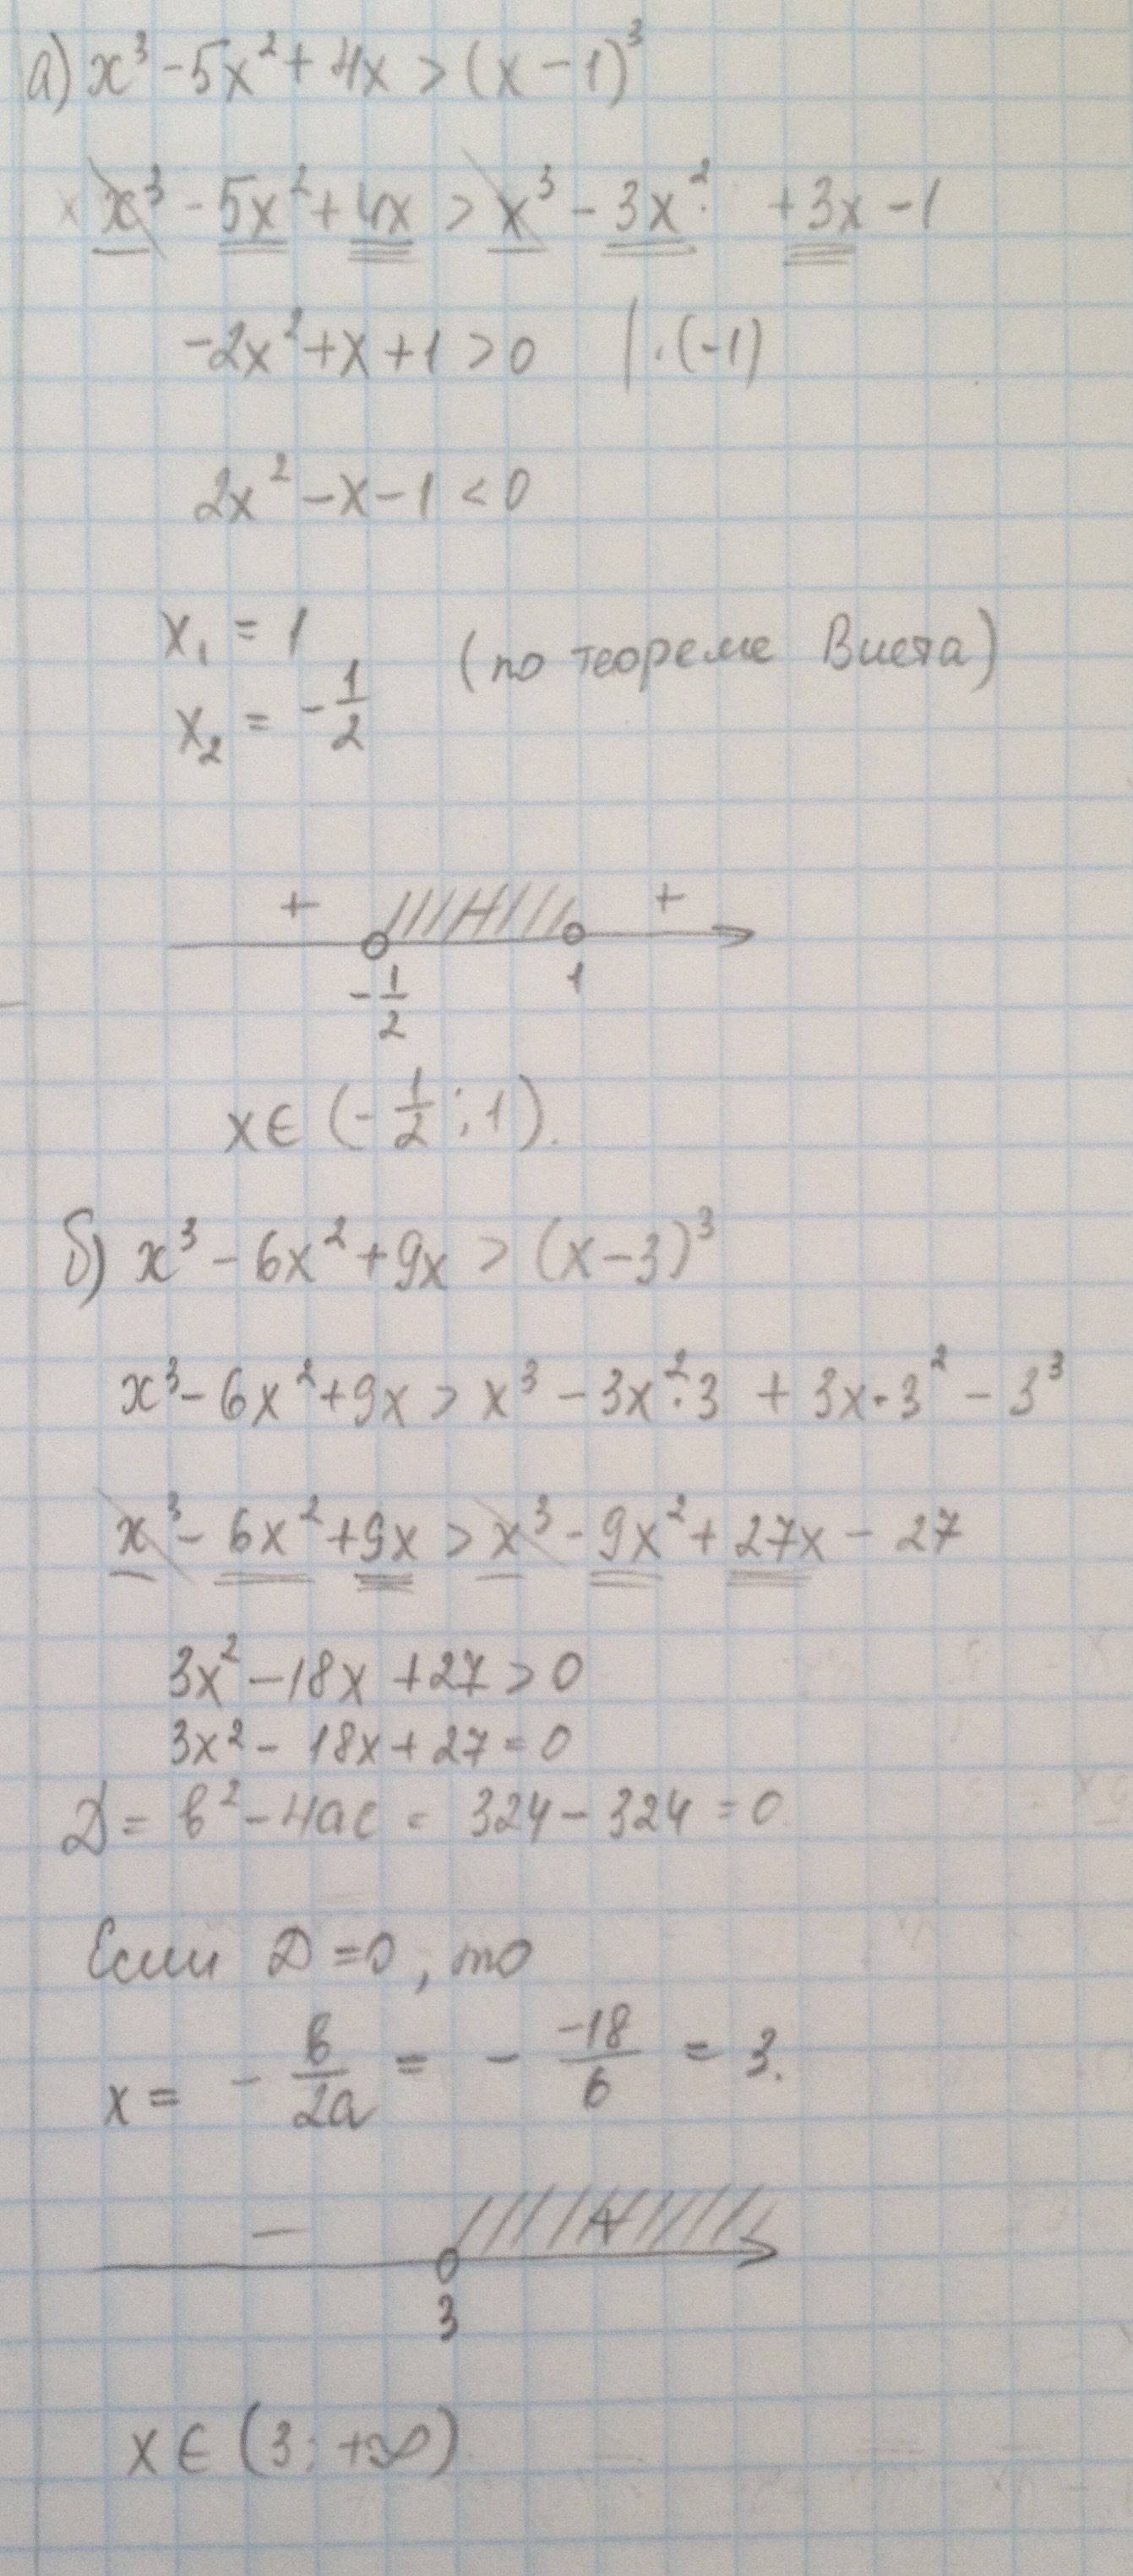 а) x³ - 5x² + 4x > (x - 1)³
x³ - 5x² + 4x > x³ - 3x² · + 3x - 1
-2x² + x + 1 > 0 | · (-1)
2x² - x - 1 < 0
x₁ = 1
x₂ = - 1/2 (по теореме Виета)
+ +
- 1/2 1
x ∈ (- 1/2 ; 1).
б) x³ - 6x² + 9x > (x - 3)³
x³ - 6x² + 9x > x³ - 3x² · 3 + 3x · 3² - 3³
x³ - 6x² + 9x > x³ - 9x² + 27x - 27
3x² - 18x + 27 > 0
3x² - 18x + 27 = 0
D = b² - 4ac = 324 - 324 = 0
Если D = 0, то
x = - b/2a = - -18/6 = 3.
- +
3
x ∈ (3; +∞)